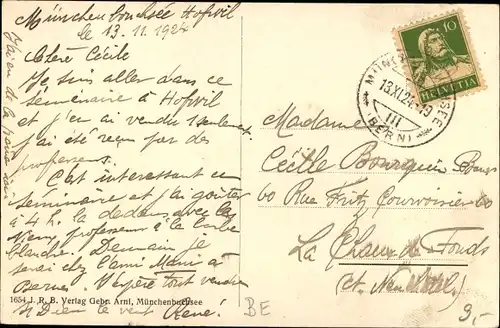 Münchenbuchsee Hofwil
le 13.11.1924
Chère Cécile
Je suis aller dans ce
séminaire à Hofwil
et j'en ai vendu 1 seulement
j'ai été reçu par des
professeurs.
C'est interessant ce
seminaire et j'ai goûter
à 4 h. là dedans avec les
vieux professeur à la barbe
blanche. Demain je
serai chez l'ami Marti à
Berne. J'espère tout vendre
si Dieu le veut René!
1654 J. R. B. Verlag Gebr. Arnl, Münchenbuchsee
BE
10
HELVETIA
13.XI.24.-19
III
(BERN)
Madame
Cécile Bourquin
60 Rue Fritz Courvoisier 60
La Chaux-de-Fonds
(Ct. Neuchâtel)
3,-